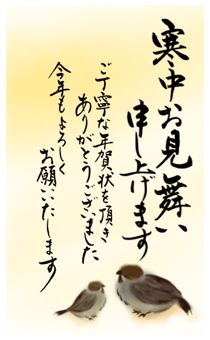 寒中お見舞い
申し上げます
ご丁寧な年賀状を頂き
ありがとうございました
今年もよろしく
お願いいたします